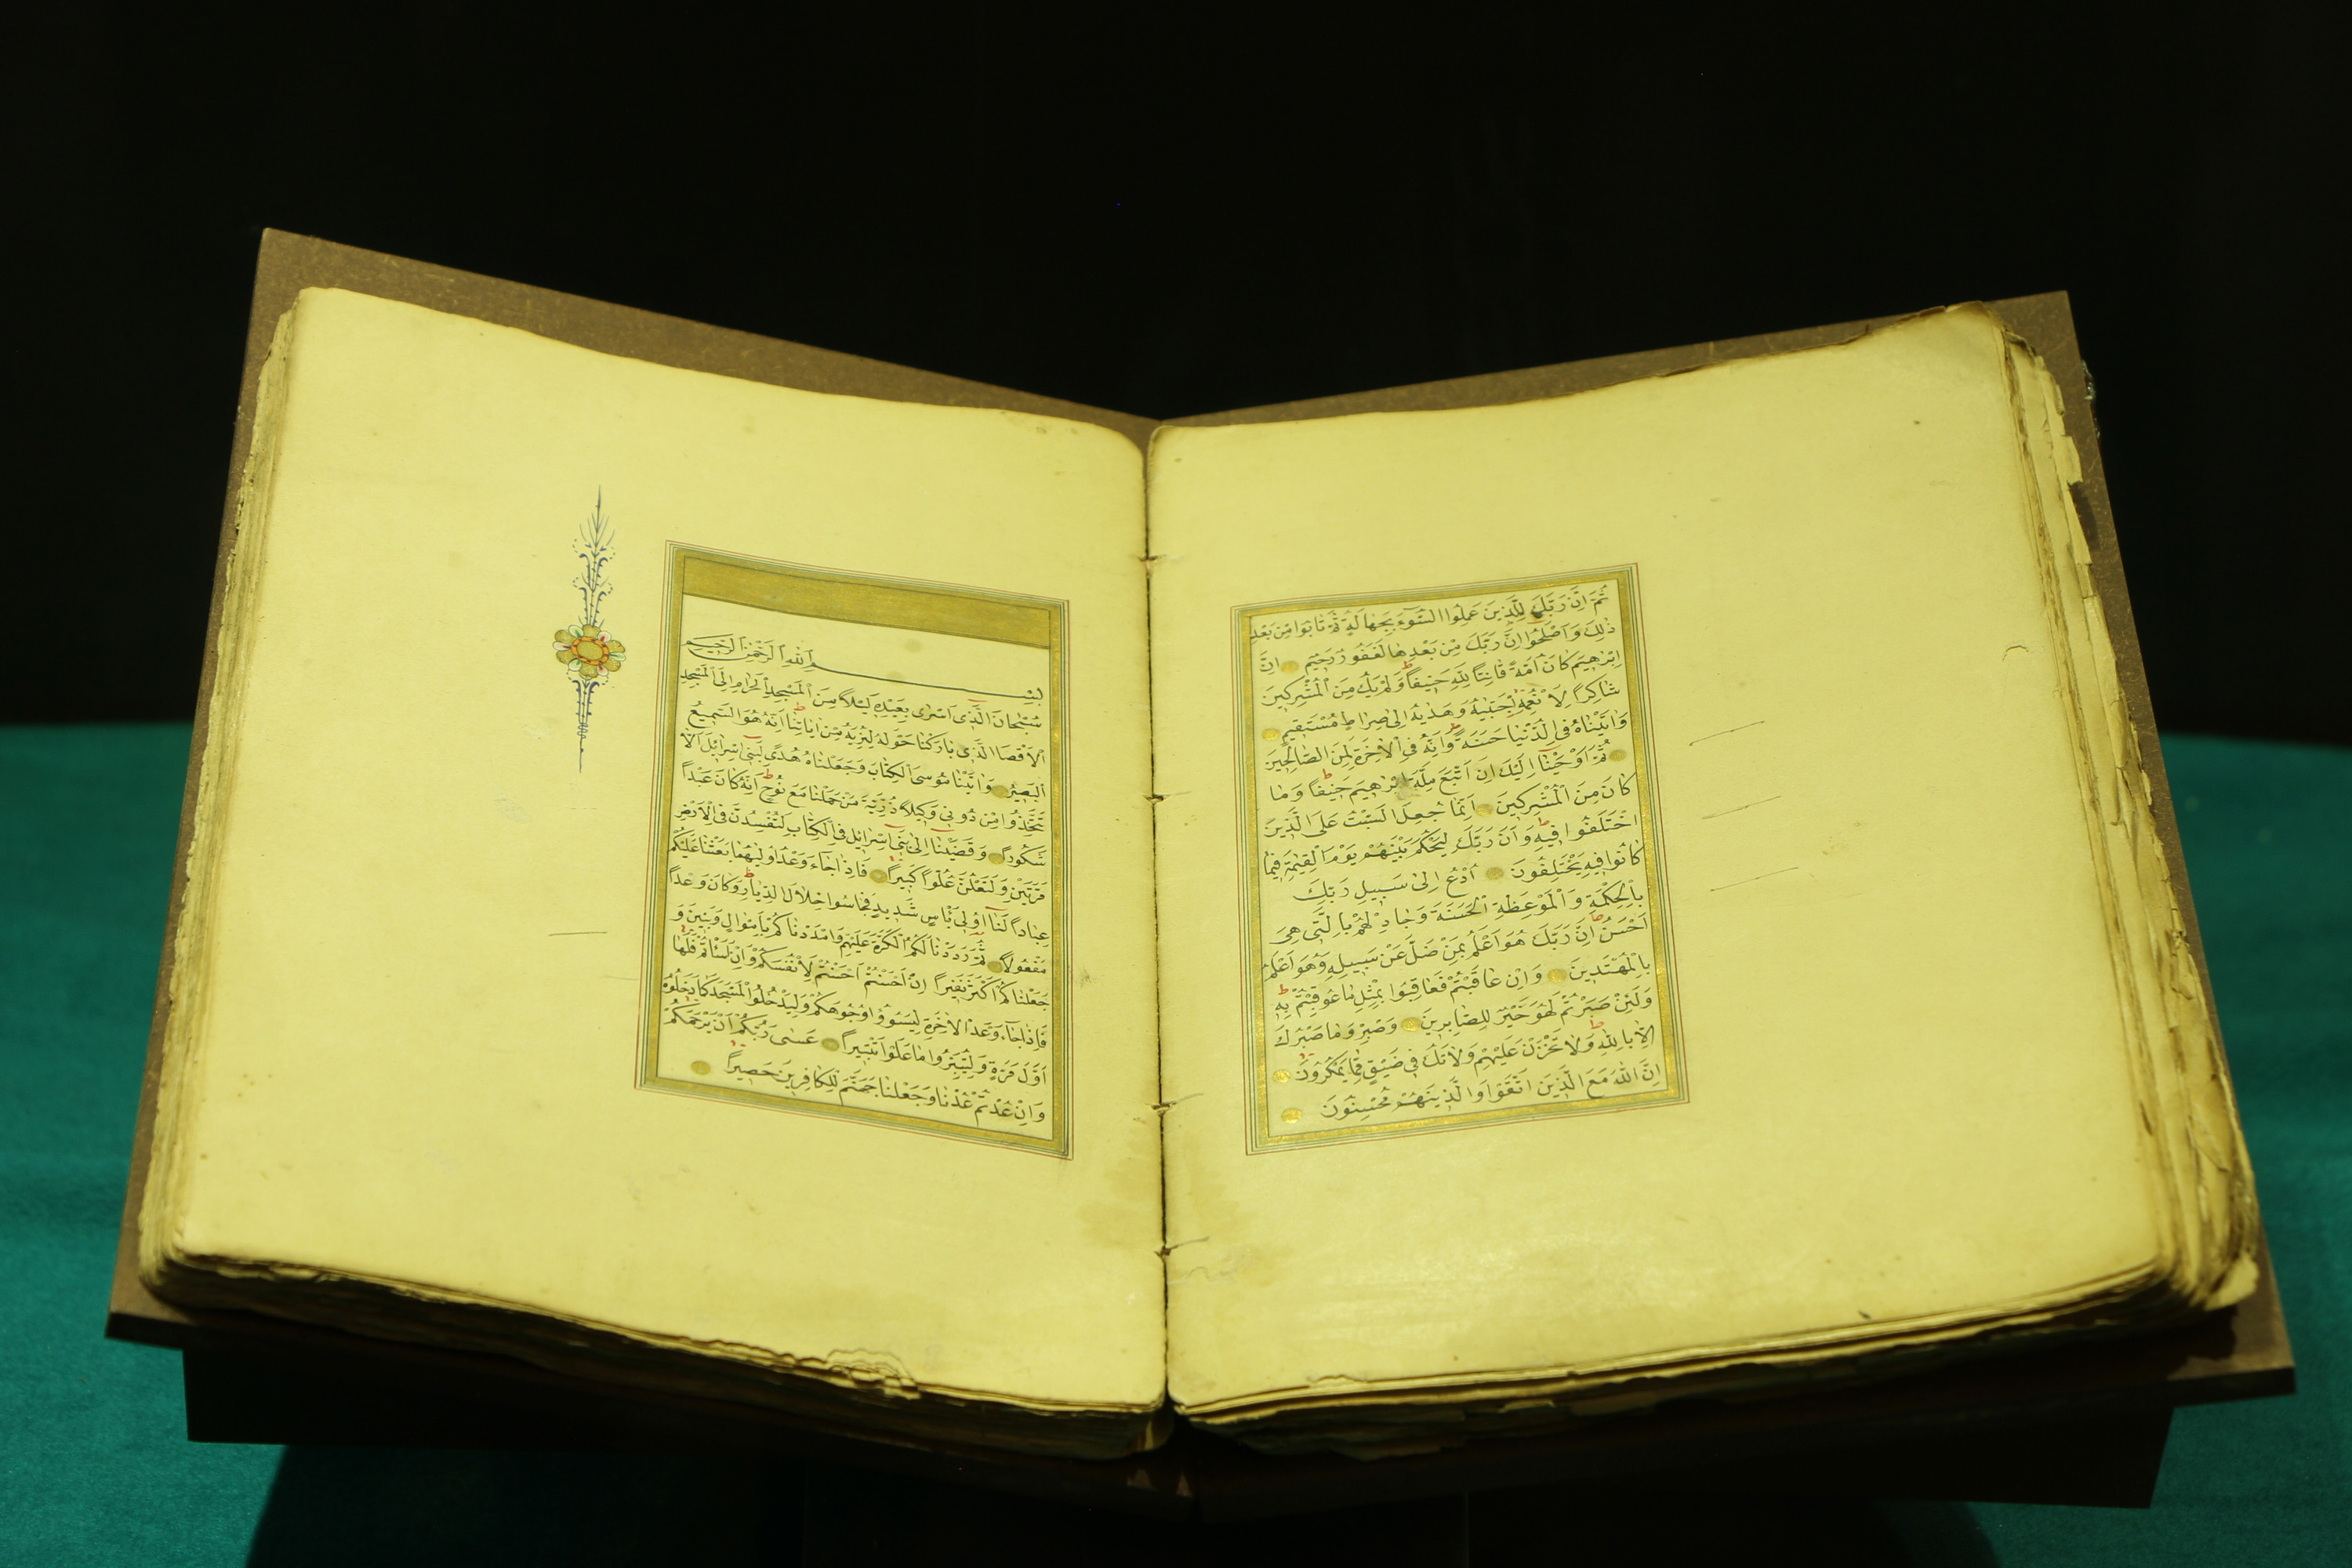 ثُمَّ اِنَّ رَبَّكَ لِلَّذِينَ عَمِلُوا السُّوٓءَ بِجَهَالَةٍ ثُمَّ تَابُوا مِنْ بَعْدِ
ذٰلِكَ وَاَصْلَحُوا اِنَّ رَبَّكَ مِنْ بَعْدِهَا لَغَفُورٌ رَحِيمٌ اِنَّ
اِبْرٰهِيمَ كَانَ اُمَّةً قَانِتًا لِلّٰهِ حَنِيفًا ط وَلَمْ يَكُ مِنَ الْمُشْرِكِينَ
شَاكِرًا لِاَنْعُمِهِ اِجْتَبٰيهُ وَهَدٰيهُ اِلٰى صِرَاطٍ مُسْتَقِيمٍ
وَاٰتَيْنَاهُ فِي الدُّنْيَا حَسَنَةً ط وَاِنَّهُ فِي الْاٰخِرَةِ لَمِنَ الصَّالِحِينَ
ثُمَّ اَوْحَيْنَٓا اِلَيْكَ اَنِ اتَّبِعْ مِلَّةَ اِبْرٰهِيمَ حَنِيفًا ط وَمَا
كَانَ مِنَ الْمُشْرِكِينَ اِنَّمَا جُعِلَ السَّبْتُ عَلَى الَّذِينَ
اخْتَلَفُوا فِيهِ ط وَاِنَّ رَبَّكَ لَيَحْكُمُ بَيْنَهُمْ يَوْمَ الْقِيٰمَةِ فِيمَا
كَانُوا فِيهِ يَخْتَلِفُونَ اُدْعُ اِلٰى سَبِيلِ رَبِّكَ
بِالْحِكْمَةِ وَالْمَوْعِظَةِ الْحَسَنَةِ وَجَادِلْهُمْ بِالَّتِي هِيَ
اَحْسَنُ ط اِنَّ رَبَّكَ هُوَ اَعْلَمُ بِمَنْ ضَلَّ عَنْ سَبِيلِهِ وَهُوَ اَعْلَمُ
بِالْمُهْتَدِينَ وَاِنْ عَاقَبْتُمْ فَعَاقِبُوا بِمِثْلِ مَا عُوقِبْتُمْ بِهِ ط
وَلَئِنْ صَبَرْتُمْ لَهُوَ خَيْرٌ لِلصَّابِرِينَ وَاصْبِرْ وَمَا صَبْرُكَ
اِلَّا بِاللّٰهِ وَلَا تَحْزَنْ عَلَيْهِمْ وَلَا تَكُ فِي ضَيْقٍ مِمَّا يَمْكُرُونَ
اِنَّ اللّٰهَ مَعَ الَّذِينَ اتَّقَوْا وَالَّذِينَ هُمْ مُحْسِنُونَ
بِسْمِ اللّٰهِ الرَّحْمٰنِ الرَّحِيمِ
سُبْحَانَ الَّذِٓي اَسْرٰى بِعَبْدِهِ لَيْلًا مِنَ الْمَسْجِدِ الْحَرَامِ اِلَى الْمَسْجِدِ
الْاَقْصَا الَّذِي بَارَكْنَا حَوْلَهُ لِنُرِيَهُ مِنْ اٰيَاتِنَا ط اِنَّهُ هُوَ السَّمِيعُ
الْبَصِيرُ وَاٰتَيْنَا مُوسَى الْكِتَابَ وَجَعَلْنَاهُ هُدًى لِبَنِٓي اِسْرَائِلَ اَلَّا
تَتَّخِذُوا مِنْ دُونِي وَكِيلًا ذُرِّيَّةَ مَنْ حَمَلْنَا مَعَ نُوحٍ ط اِنَّهُ كَانَ عَبْدًا
شَكُورًا وَقَضَيْنَٓا اِلٰى بَنِٓي اِسْرَائِلَ فِي الْكِتَابِ لَتُفْسِدُنَّ فِي الْاَرْضِ
مَرَّتَيْنِ وَلَتَعْلُنَّ عُلُوًّا كَبِيرًا فَاِذَا جَٓاءَ وَعْدُ اُولٰيهُمَا بَعَثْنَا عَلَيْكُمْ
عِبَادًا لَنَٓا اُولِي بَأْسٍ شَدِيدٍ فَجَاسُوا خِلَالَ الدِّيَارِ ط وَكَانَ وَعْدًا
مَفْعُولًا ثُمَّ رَدَدْنَا لَكُمُ الْكَرَّةَ عَلَيْهِمْ وَاَمْدَدْنَاكُمْ بِاَمْوَالٍ وَبَنِينَ وَ
جَعَلْنَاكُمْ اَكْثَرَ نَفِيرًا اِنْ اَحْسَنْتُمْ اَحْسَنْتُمْ لِاَنْفُسِكُمْ وَاِنْ اَسَأْتُمْ فَلَهَا
فَاِذَا جَٓاءَ وَعْدُ الْاٰخِرَةِ لِيَسُوؤُا وُجُوهَكُمْ وَلِيَدْخُلُوا الْمَسْجِدَ كَمَا دَخَلُوهُ
اَوَّلَ مَرَّةٍ وَلِيُتَبِّرُوا مَا عَلَوْا تَتْبِيرًا عَسٰى رَبُّكُمْ اَنْ يَرْحَمَكُمْ
وَاِنْ عُدْتُمْ عُدْنَا وَجَعَلْنَا جَهَنَّمَ لِلْكَافِرِينَ حَصِيرًا